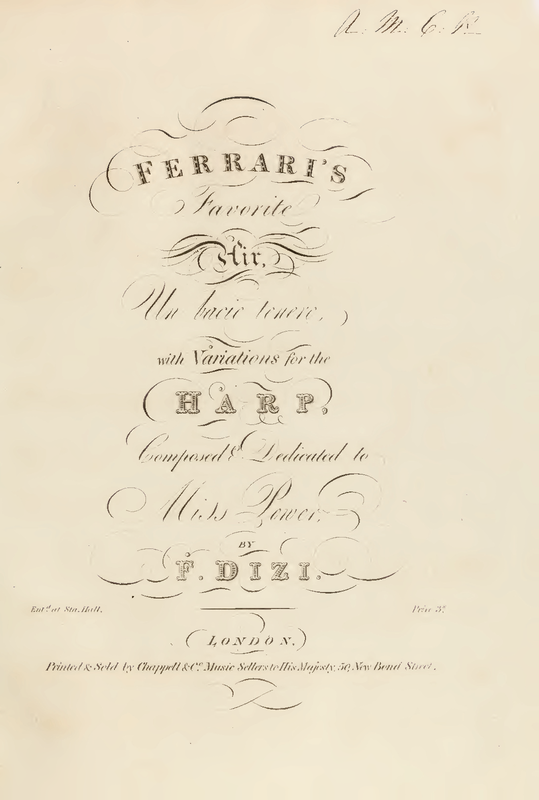 A. M. C.
FERRARI'S
Favorite
Air,
Un bacio tenero,
with Variations for the
HARP,
Composed & Dedicated to
Miss Power,
BY
F. DIZI.
Ent.d at Sta. Hall. Price 3s.
LONDON.
Printed & Sold by Chappell & Co. Music Sellers to His Majesty, 50, New Bond Street.